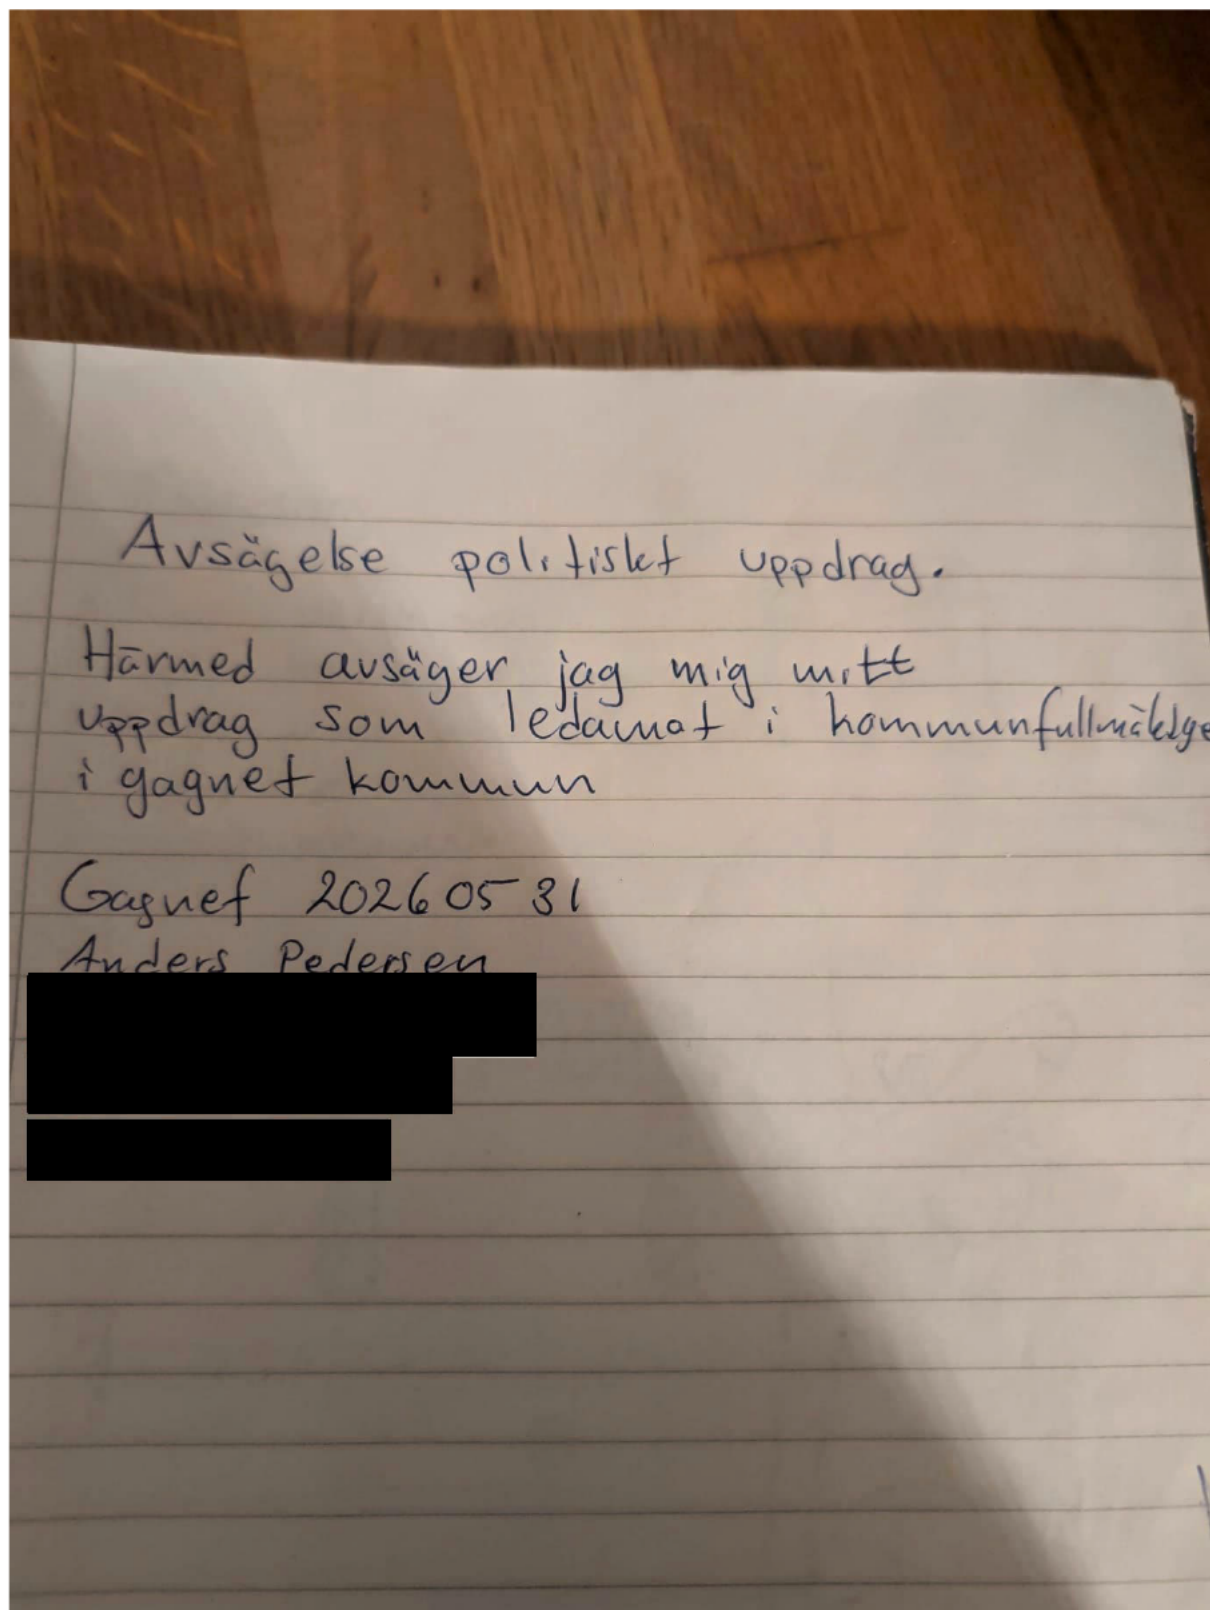 Avsägelse politiskt uppdrag.
Härmed avsäger jag mig mitt
uppdrag som ledamot i kommunfullmäktige
i gagnef kommun
Gagnef 2026 05 31
Anders Pedersen